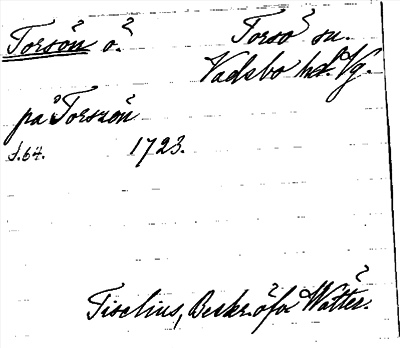 Torsön ö.
Torsö sn.
Vadsbo hd. Vg.
på Torszön
s. 64. 1723.
Tiselius, Beskr. öfr Wätter.